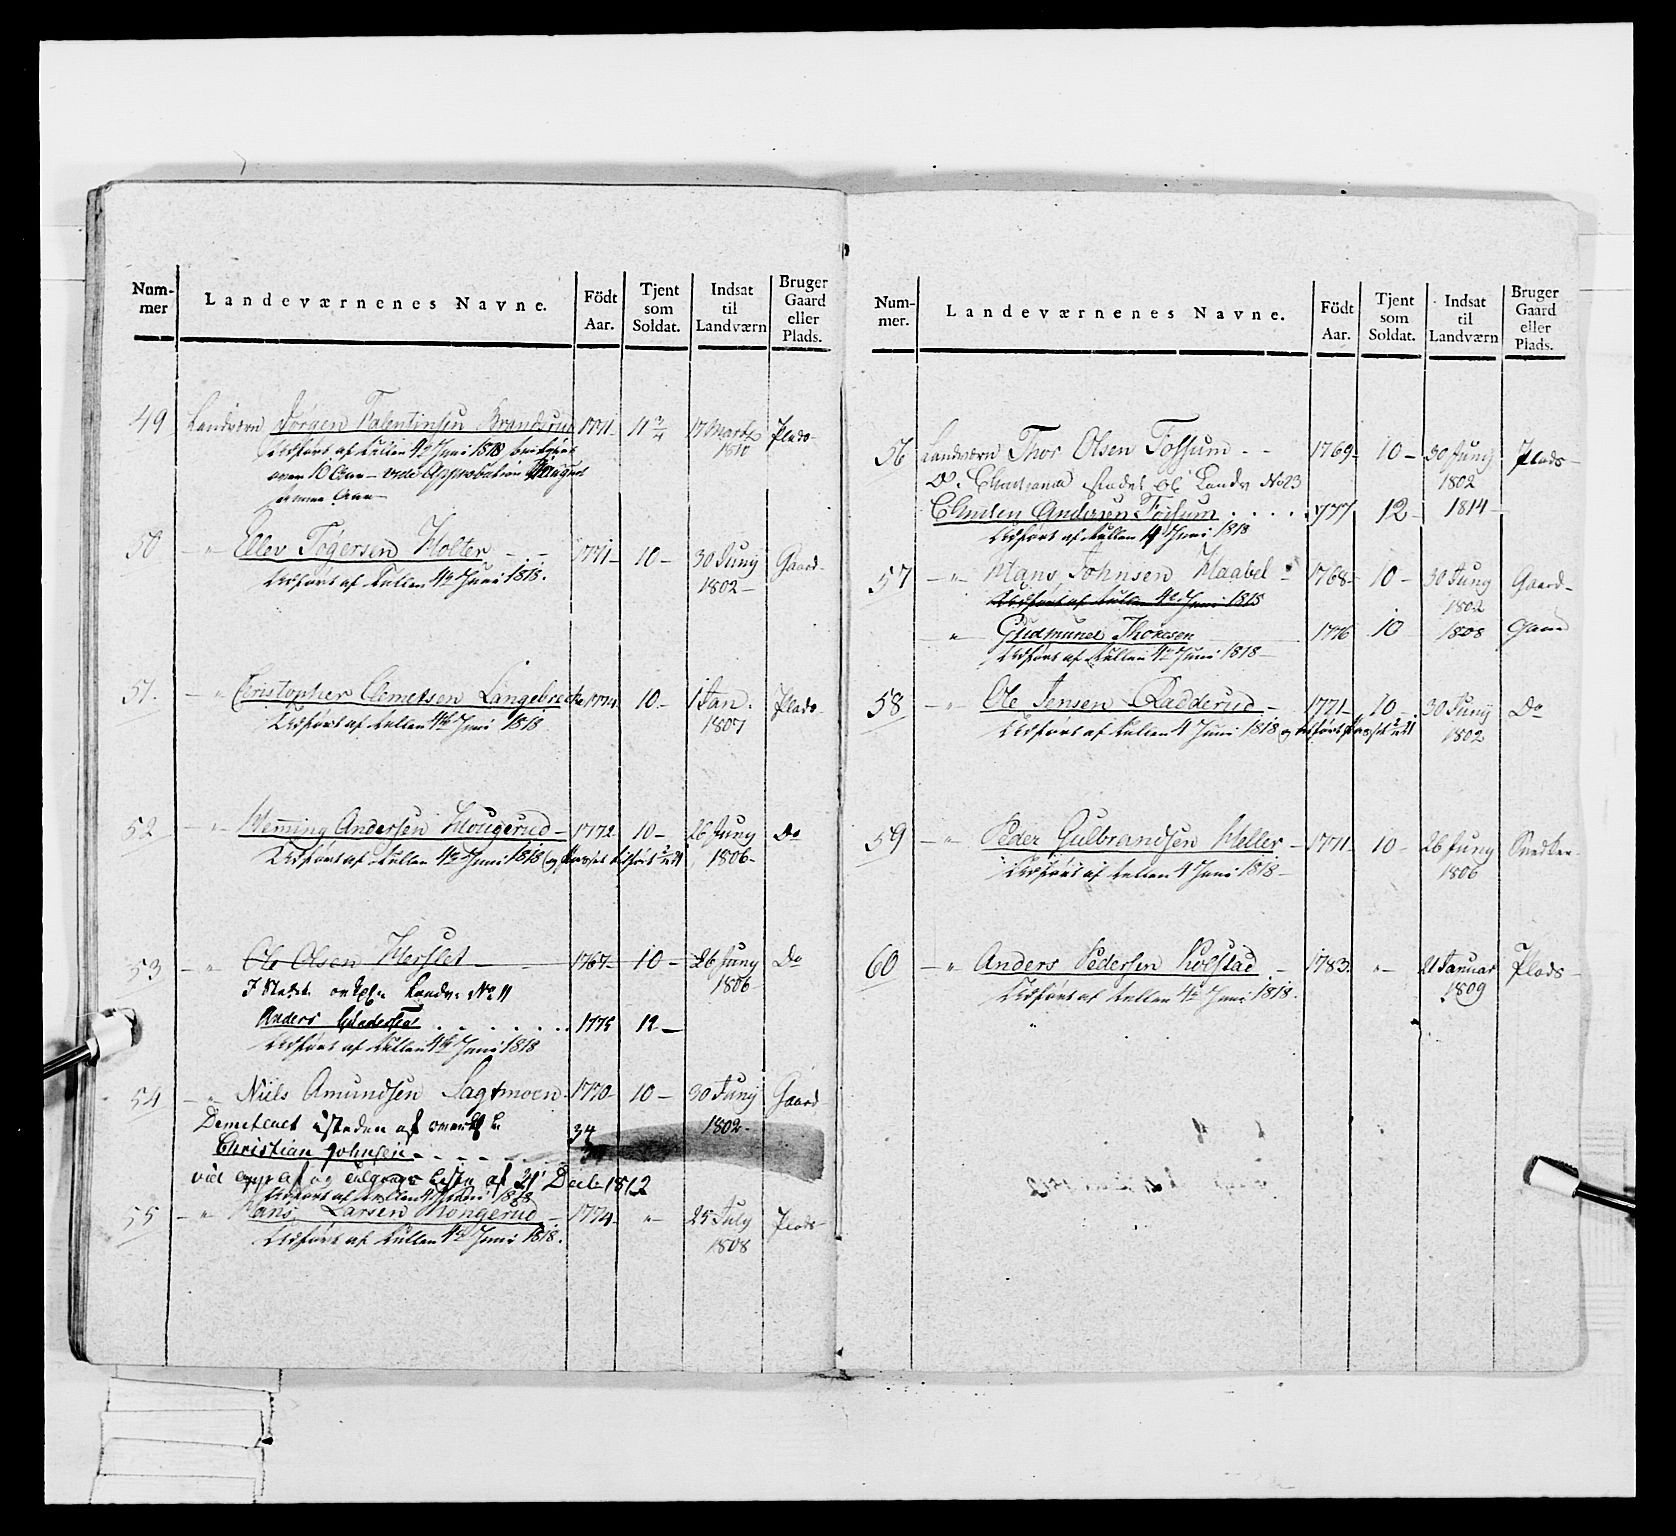 Num-
mer
Landeværnenes Navne.
Födt
Aar.
Tjent
som
Soldat.
Indsat
til
Landværn
Bruger
Gaard
eller
Plads.
49 Landværn Jørgen Valentinsen Branderud 1771 11 3/4 17 Martz Plads
1810
Udført af Rullen 4de Juni 1818
over 10 Aar
50 — " — Ellev Togersen Holter 1771 10 — 30 Juny Gaard
Udført af Rullen 4de Juni 1818. 1802 —
51. — " Christopher Clemetsen Langebrecke 1774 10 — 1 Jan. Plads
Udført af Rullen 4de Juni 1818 1807
52 — " — Henning Andersen Hougerud — 1772 10 — 26 Juny Do
Udført af Rullen 4de Juni 1818 og Passet udført 1806 —
53 — " Ole Olsen Herslet — 1767 — 10 — 26 Juny Do
I Stedet Landv. No 11 1806
Anders 1775 12 —
Udført af Rullen 4de Juni 1818
54 — " Niels Amundsen Sagtmoen 1770 10 — 30 Juny Gaard
isteden af 34 1802 —
Christian Johnsen
af 21 Decbr 1812
Udført af Rullen 4 Juni 1818
55 — " Hans Larsen Kongerud — 1774 " — 25 July Plads
Udført af Rullen 4de Juni 1818. 1808
Num-
mer.
Landeværnenes Navne.
Födt
Aar.
Tjent
som
Soldat.
Indsat
til
Landværn
Bruger
Gaard
eller
Plads.
56 Landværn Thor Olsen Fossum 1769 10 — 30 Juny Plads
stedet Landv No 23 1802
Andersen Fossum 1777 12 — 1814
Udført af Rullen 4 Juni 1818
57 — " — Hans Johnsen Haabel 1768 10 — 30 Juny Gaard
Udført af Rullen 4de Juni 1818 1802
" Gudmund Thoresen 1776 10 1808 Gaard
Udført af Rullen 4de Juni 1818 —
58 — " Ole Jensen Radderud — 1771 10 — 30 Juny Do
Udført af Rullen 4 Juni 1818 og udført Passet 1802
59 — " Peder Gulbrandsen Heller — 1771 10 — 26 Juny Snedker
Udført af Rullen 4 Juni 1818 — 1806
60 — " Anders Pedersen Kolstad — 1783 " — 21 Januar Plads —
Udført af Rullen 4de Juni 1818. 1809